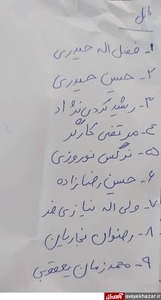 بابل
۱- فضل اله حیدری
۲- حسن حیدری
۳- رشید کردی نژاد
۴- مرتضی کارگر
۵- نرگس نوروزی
۶- حسین رضازاده
۷- ولی اله نیازی فر
۸- رضوان نجاریان
۹- محمدزمان یعقوبی
avayekhazar.ir